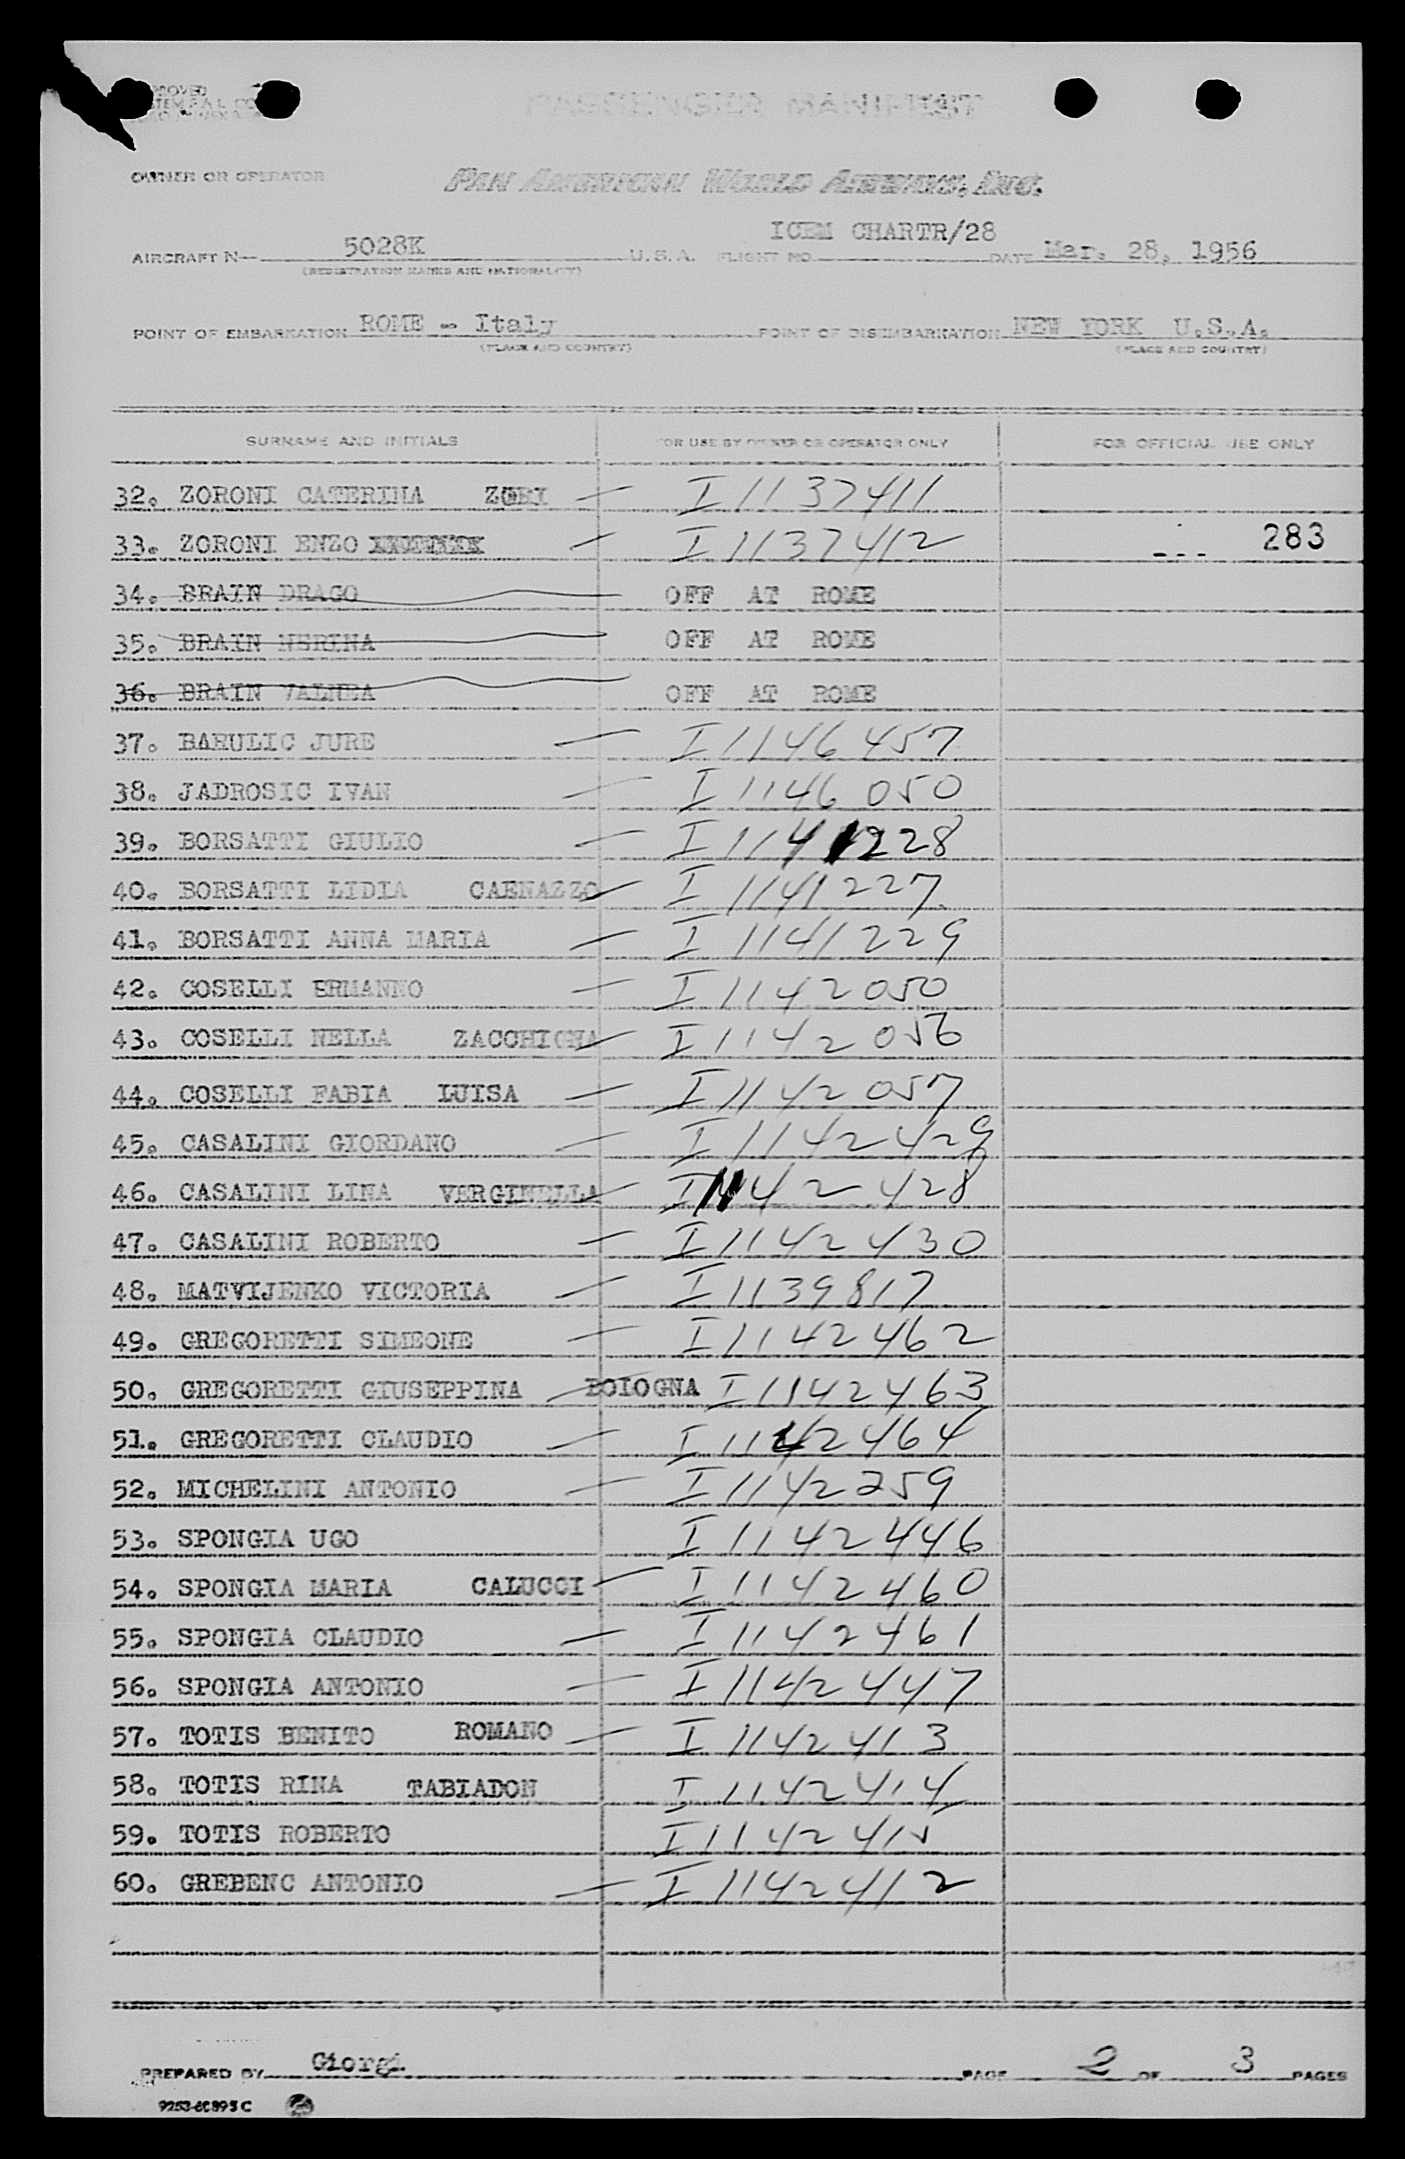 PASSENGER MANIFEST
OWNER OR OPERATOR PAN AMERICAN WORLD AIRWAYS, INC.
ICEM CHARTR/28
AIRCRAFT N- 5028K U.S.A. FLIGHT NO. DATE Mar. 28, 1956
(REGISTRATION MARKS AND NATIONALITY)
POINT OF EMBARKATION ROME - Italy POINT OF DISEMBARKATION NEW YORK U.S.A.
(PLACE AND COUNTRY) (PLACE AND COUNTRY)
SURNAME AND INITIALS FOR USE BY OWNER OR OPERATOR ONLY FOR OFFICIAL USE ONLY
32. ZORONI CATERINA ZORI — I 1137411
33. ZORONI ENZO — I 1137412 --- 283
34. BRAIN DRAGO OFF AT ROME
35. BRAIN NERINA OFF AT ROME
36. BRAIN VALNEA OFF AT ROME
37. BARULIC JURE — I 1146457
38. JADROSIC IVAN — I 1146050
39. BORSATTI GIULIO — I 1141228
40. BORSATTI LIDIA CAENAZZO — I 1141227
41. BORSATTI ANNA MARIA — I 1141229
42. COSELLI ERMANNO — I 1142050
43. COSELLI NELLA ZACCHIGNA — I 1142056
44. COSELLI FABIA LUISA — I 1142057
45. CASALINI GIORDANO — I 1142429
46. CASALINI LINA VERGINELLA — I 1142428
47. CASALINI ROBERTO — I 1142430
48. MATVIJENKO VICTORIA — I 1139817
49. GREGORETTI SIMEONE — I 1142462
50. GREGORETTI GIUSEPPINA — BOLOGNA I 1142463
51. GREGORETTI CLAUDIO — I 1142464
52. MICHELINI ANTONIO — I 1142259
53. SPONGIA UGO I 1142446
54. SPONGIA MARIA CALUCCI — I 1142460
55. SPONGIA CLAUDIO — I 1142461
56. SPONGIA ANTONIO — I 1142447
57. TOTIS BENITO ROMANO — I 1142413
58. TOTIS RINA TABIADON I 1142414
59. TOTIS ROBERTO I 1142415
60. GREBENC ANTONIO — I 1142412
PREPARED BY Giorgi PAGE 2 OF 3 PAGES